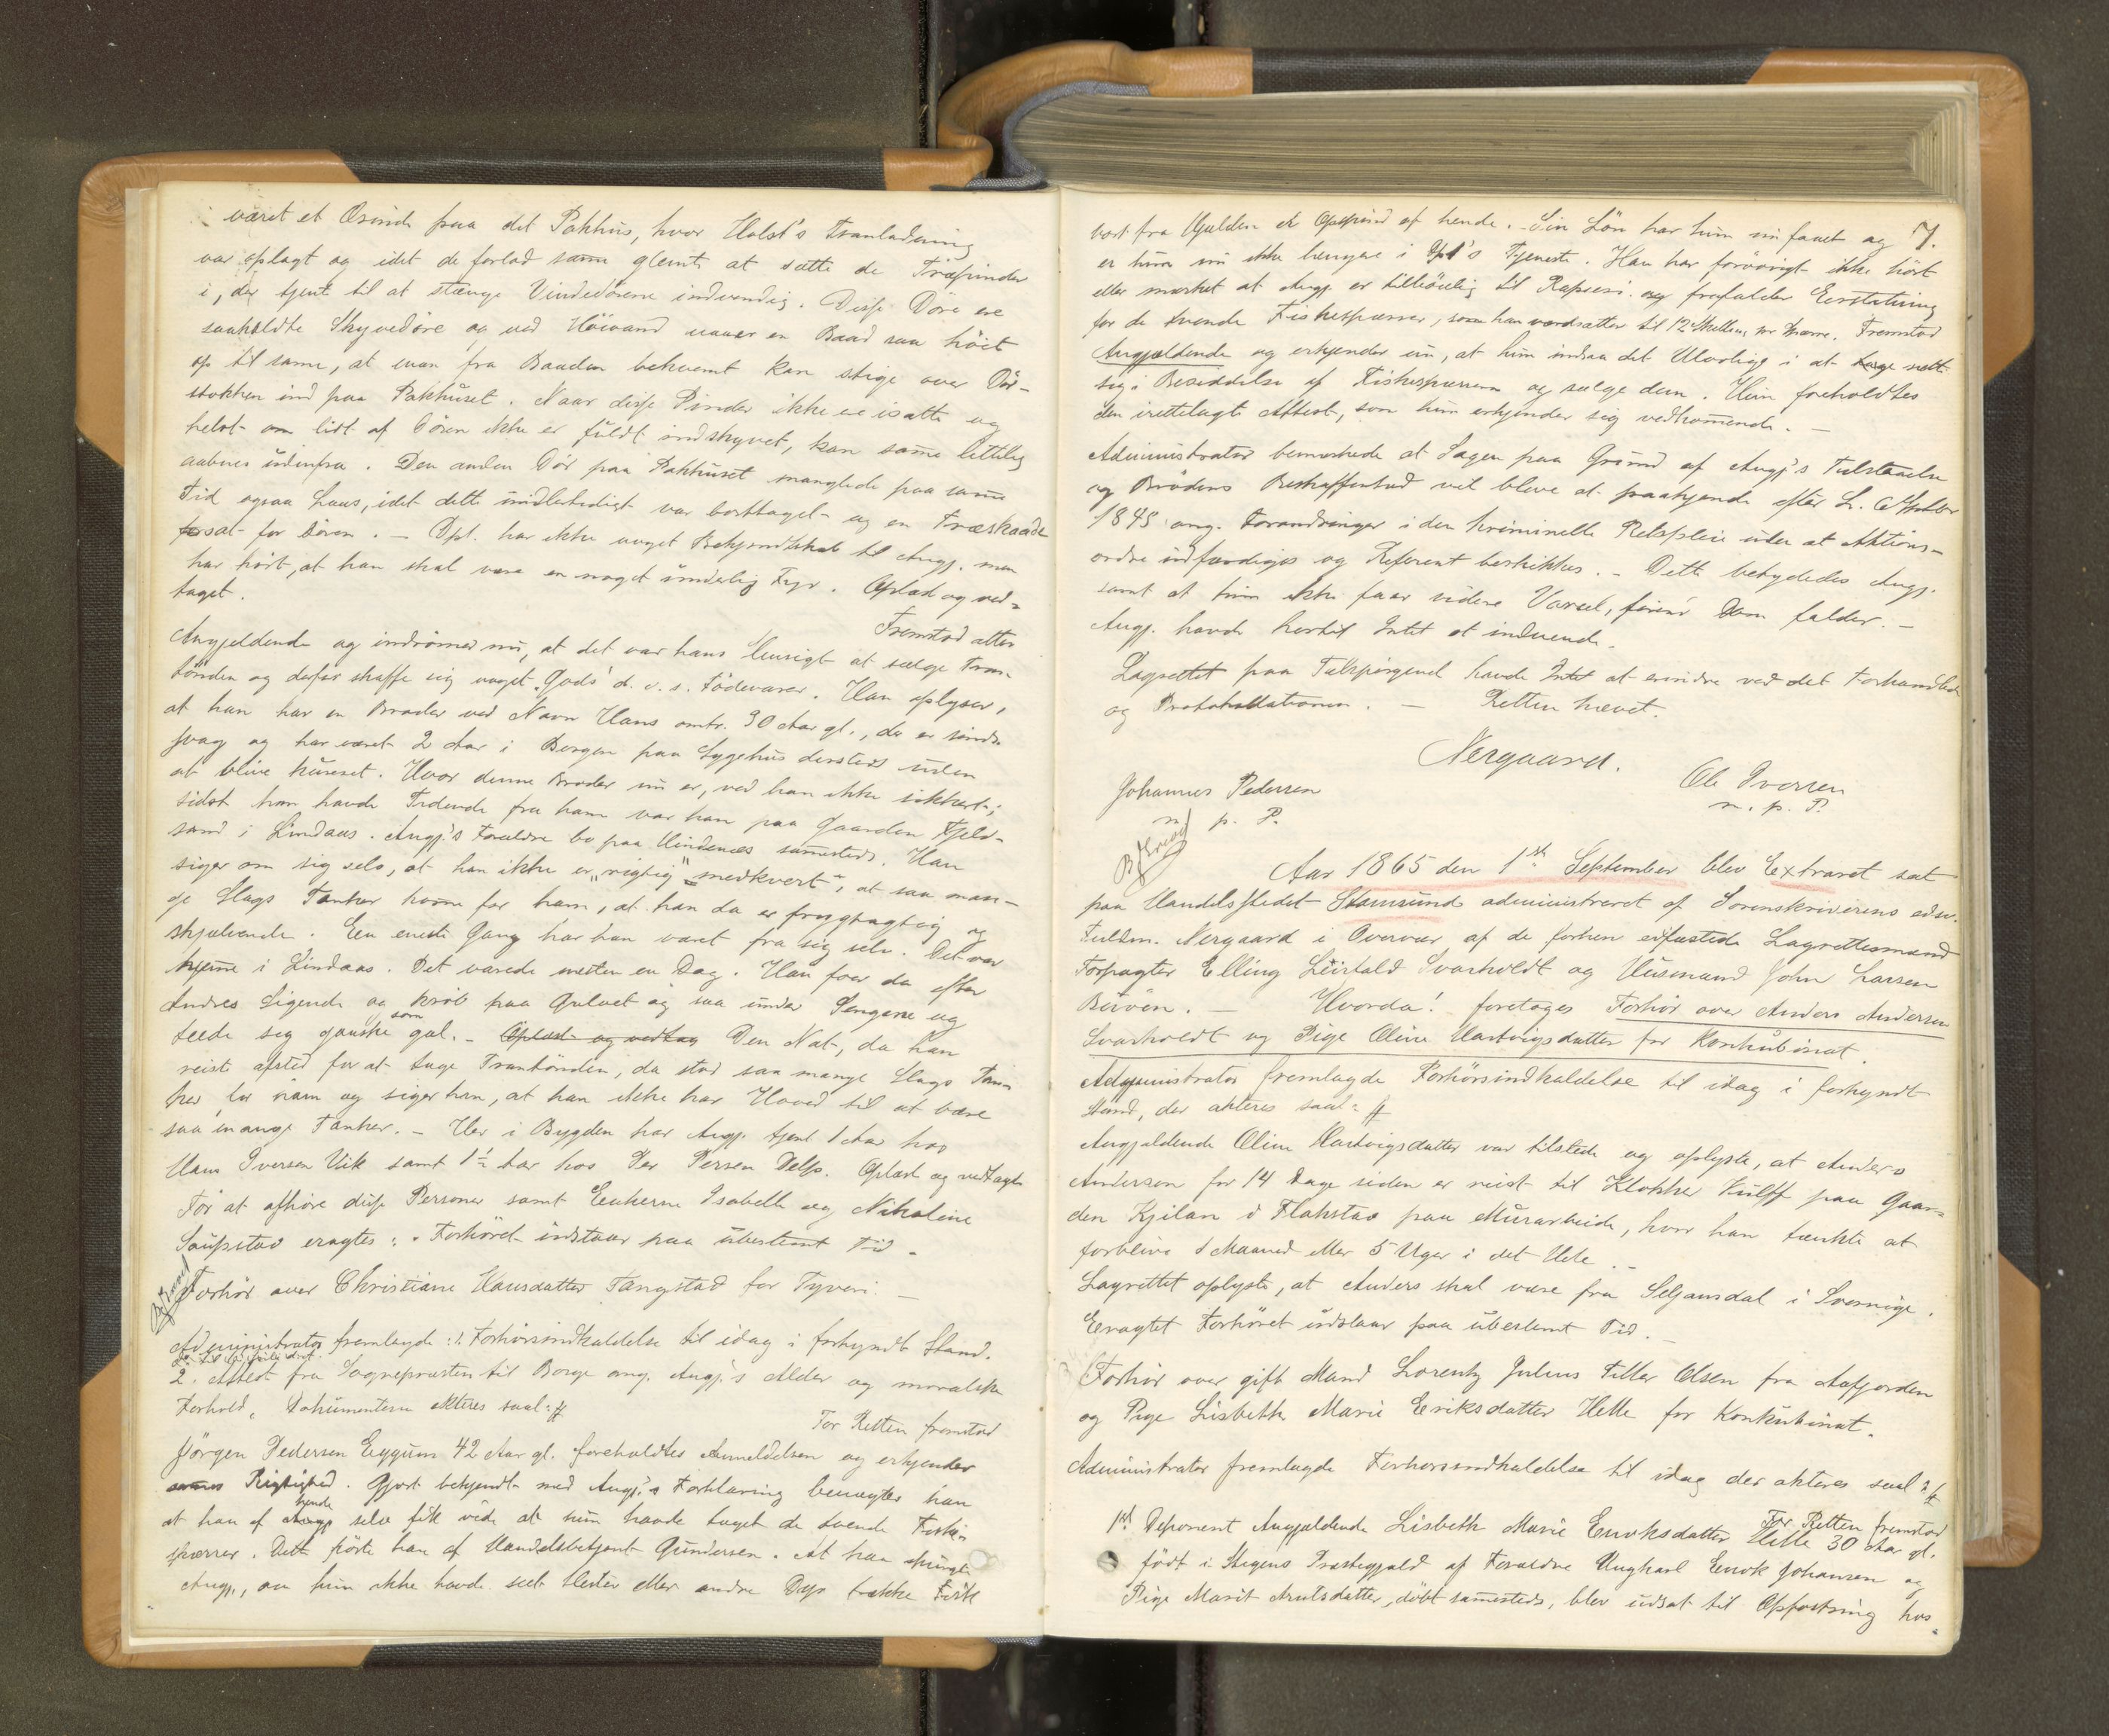 været et Ærinde paa det Pakhus, hvor Holst's Tranladning
var oplagt og idet de forlod samme glemte at sætte de Træpinder
i, der tjente til at stænge Vindedørene indvendig. Disse Døre ere
saakaldte Skyvedøre og ved Höivand naaer en Baad saa höit
op til samme, at man fra Baaden bekvemt kan stige over Dör-
stokken ind paa Pakhuset. Naar disse Pinder ikke ere isatte og
helst om lidt af Dören ikke er fuldt indskyvet, kan samme lettelig
aabnes udenfra. Den anden Dör paa Pakhuset manglede paa samme
Tid ogsaa Laas, idet dette midlertidigt var borttaget og en Træskaade
sat for Døren. – Dpt. har ikke noget Bekjendtskab til Angj. men
har hört, at han skal være en noget underlig Fyr. Oplæst og ved-
taget.
Fremstod atter
Angjeldende og indrömmed nu, at det var hans Hensigt at sælge Tran-
tönden og derfor skaffe sig noget "Gods" d. v. s. Födevarer. Han oplyser,
at han har en Broder ved Navn Hans omtr. 30 Aar gl., der er sinds-
svag og har været 2 Aar i Bergen paa Sygehus dersteds uden
at blive kureret. Hvor denne Broder nu er, ved han ikke sikkert;
sidst han havde Tidende fra ham var han paa Gaarden Fjeld-
sand i Lindaas. Angj.'s Forældre bo paa Hindenæs sammesteds. Han
siger om sig selv, at han ikke er "rigtig" "medkvert", at saa man-
ge Slags Tanker komme for ham, at han da er frygtagtig og
skjælvende. En eneste Gang har han været fra sig selv. Det var
hjemme i Lindaas. Det varede næsten en Dag. Han foer da efter
Andres Sigende og kröb paa Gulvet og saa under Sengene og
teede sig ganske som gal. – Oplæst og vedtag Den Nat, da han
reiste afsted for at tage Trantönden, da stod saa mange Slags Tan-
ker for ham og siger han, at han ikke har Hoved til at bære
saa mange Tanker. – Her i Bygden har Angj. tjent 1 Aar hos
Hans Iversen Vik samt 1½ Aar hos Per Persen Delp. Oplæst og vedtaget
For at afhöre disse Personer samt Enkerne Isabella og Nikoline
Saupstad eragtes: Forhöret udstaar paa ubestemt Tid –
Forhör over Christiane Hansdatter Tangstad for Tyveri. –
Administrator fremlagde: 1. Forhörsindkaldelse til idag i forkyndt Stand.
2. Attest fra Sognepræsten til Borge ang. Angj.'s Alder og moralske
Forhold, Dokumenterne akteres saal:
For Retten fremstod
Jörgen Pedersen Eggum 42 Aar gl. foreholdtes Anmeldelsen og erkjender
sammes Rigtighed. Gjort bekjendt med Angj.'s Forklaring benægter han
at han af hende selv fik vide at hun havde taget de tvende Fiske-
spærrer. Dette hörte han af Handelsbetjent Gundersen. At han spurgte
Angj., om hun ikke havde seet Hester eller andre Dyr trække Fisk
7.
bort fra Hjælden er Opspind af hende. Sin Lön har hun nu faaet og
er hun nu ikke længere i Dpt's Tjeneste. Han har forövrigt ikke hört
eller mærket at Angj. er tilböielig til Rapseri og frafalder Erstatning
for de tvende Fiskespærrer, som han værdsætter til 12 Skilling pr Spærre. Fremstod
Angjældende og erkjender nu, at hun indsaa det Ulovlige i at sætte
sig i Besiddelse af Fiskespærrerne og sælge dem. Hun foreholdtes
den irettelagte Attest, som hun erkjender sig vedkommende. –
Administrator bemærkede at Sagen paa Grund af Angj's Tilstaaelse
og Brödens Beskaffenhed vil blive at paakjende efter L. 6 Septbr
1845 ang. Forandringer i den kriminelle Retspleie uden at Aktions-
ordre udfærdiges og Referent beskikkes. – Dette betydedes Angj.
samt at hun ikke faar videre Varsel, förend Dom falder. –
Angj. havde hertil Intet at indvende.
Lagrettet paa Tilspörgend havde Intet at erindre ved det Forhandlede
og Protokollationen. – Retten hævet.
Nergaard.
Johannes Pedersen
m. p. P.
Ole Iversen
m. p. P.
Aar 1865 den 1ste September blev Extraret sat
paa Handelsstedet Stamsund administreret af Sorenskriverens edsv.
Fuldm. Nergaard i Overvær af de forhen edfæstede Lagrettesmænd
Forpagter Elling Svarholdt og Husmand John Larsen
Hvorda! foretoges Forhör over Anders Andersen
Svarholdt og Pige Oline Hartvigsdatter for Konkubinat.
Administrator fremlagde Forhörsindkaldelse til idag i forkyndt
Stand, der akteres saal:
Angjeldende Oline Hartvigsdatter var tilstede og oplyste, at Anders
Andersen for 14 Dage siden er reist til Klokker Wulff paa Gaar-
den Kjilan i Flakstad paa Murarbeide, hvor han tænkte at
forblive 1 Maaned eller 5 Uger i det Hele. –
Lagrettet oplyste, at Anders skal være fra Seljansdal i Sverrige.
Eragtet Forhöret udstaar paa ubestemt Tid. –
Forhör over gift Mand Lorentz Julius Filler Olsen fra Aafjorden
og Pige Lisbeth Marie Eriksdatter Helle for Konkubinat.
Administrator fremlagde Forhörsindkaldelse til idag der akteres saal:
For Retten fremstod
1ste Deponent Angjældende Lisbeth Marie Enoksdatter Helle 30 Aar gl.
födt i Stegens Præstegjæld af Forældre Ungkarl Enok Johansen og
Pige Marit Arntsdatter, döbt sammesteds, blev udsat til Opfostring hos